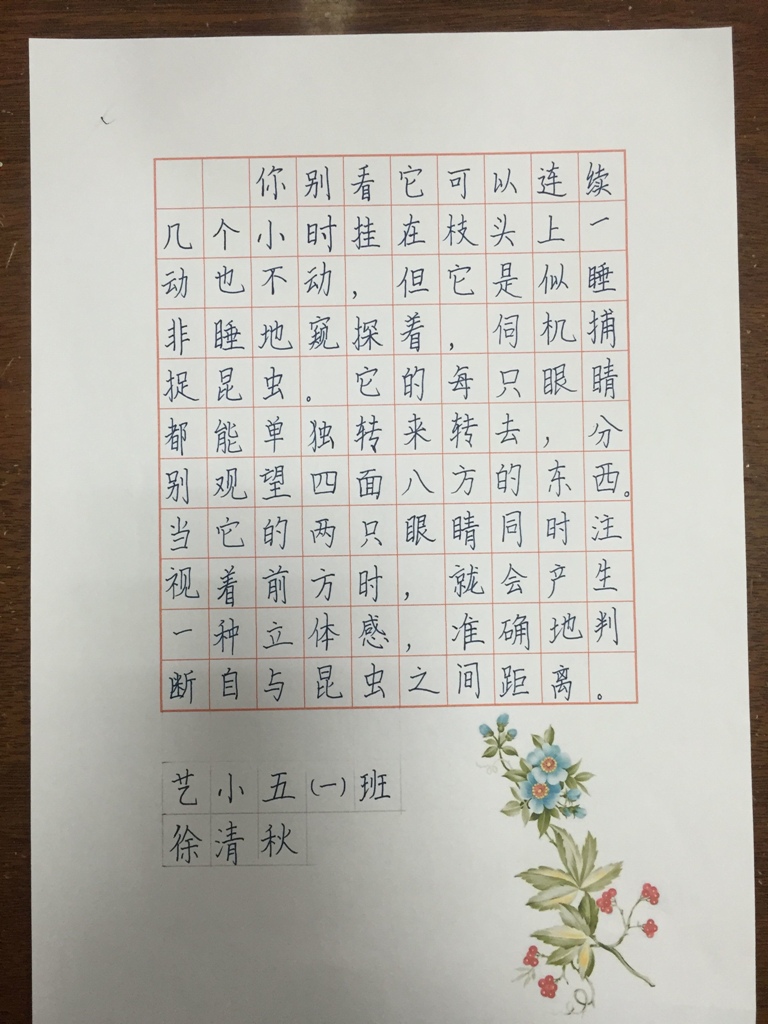 你别看它可以连续
几个小时挂在枝头上一
动也不动，但它是似睡
非睡地窥探着，伺机捕
捉昆虫。它的每只眼睛
都能单独转来转去，分
别观望四面八方的东西。
当它的两只眼睛同时注
视着前方时，就会产生
一种立体感，准确地判
断自与昆虫之间距离。
艺小五(一)班
徐清秋